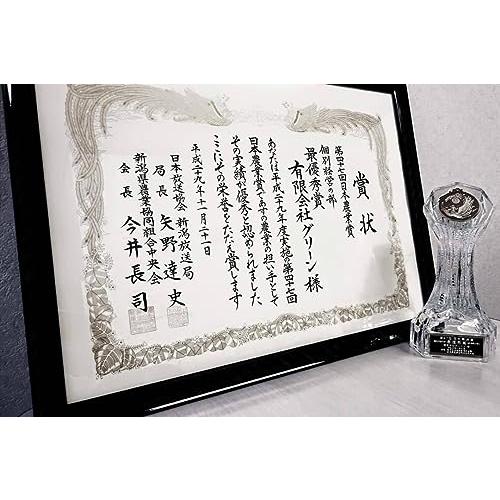 賞状
第四十七回日本農業賞
個別経営の部
最優秀賞
有限会社グリーン様
あなたは平成二十九年度実施の第四十七回
日本農業賞であすの農業の担い手として
その実績が優秀と認められました
ここにその栄誉をたたえ賞します
平成二十九年十一月二十一日
日本放送協会 新潟放送局
局長 矢野達史
新潟県農業協同組合中央会
会長 今井長司